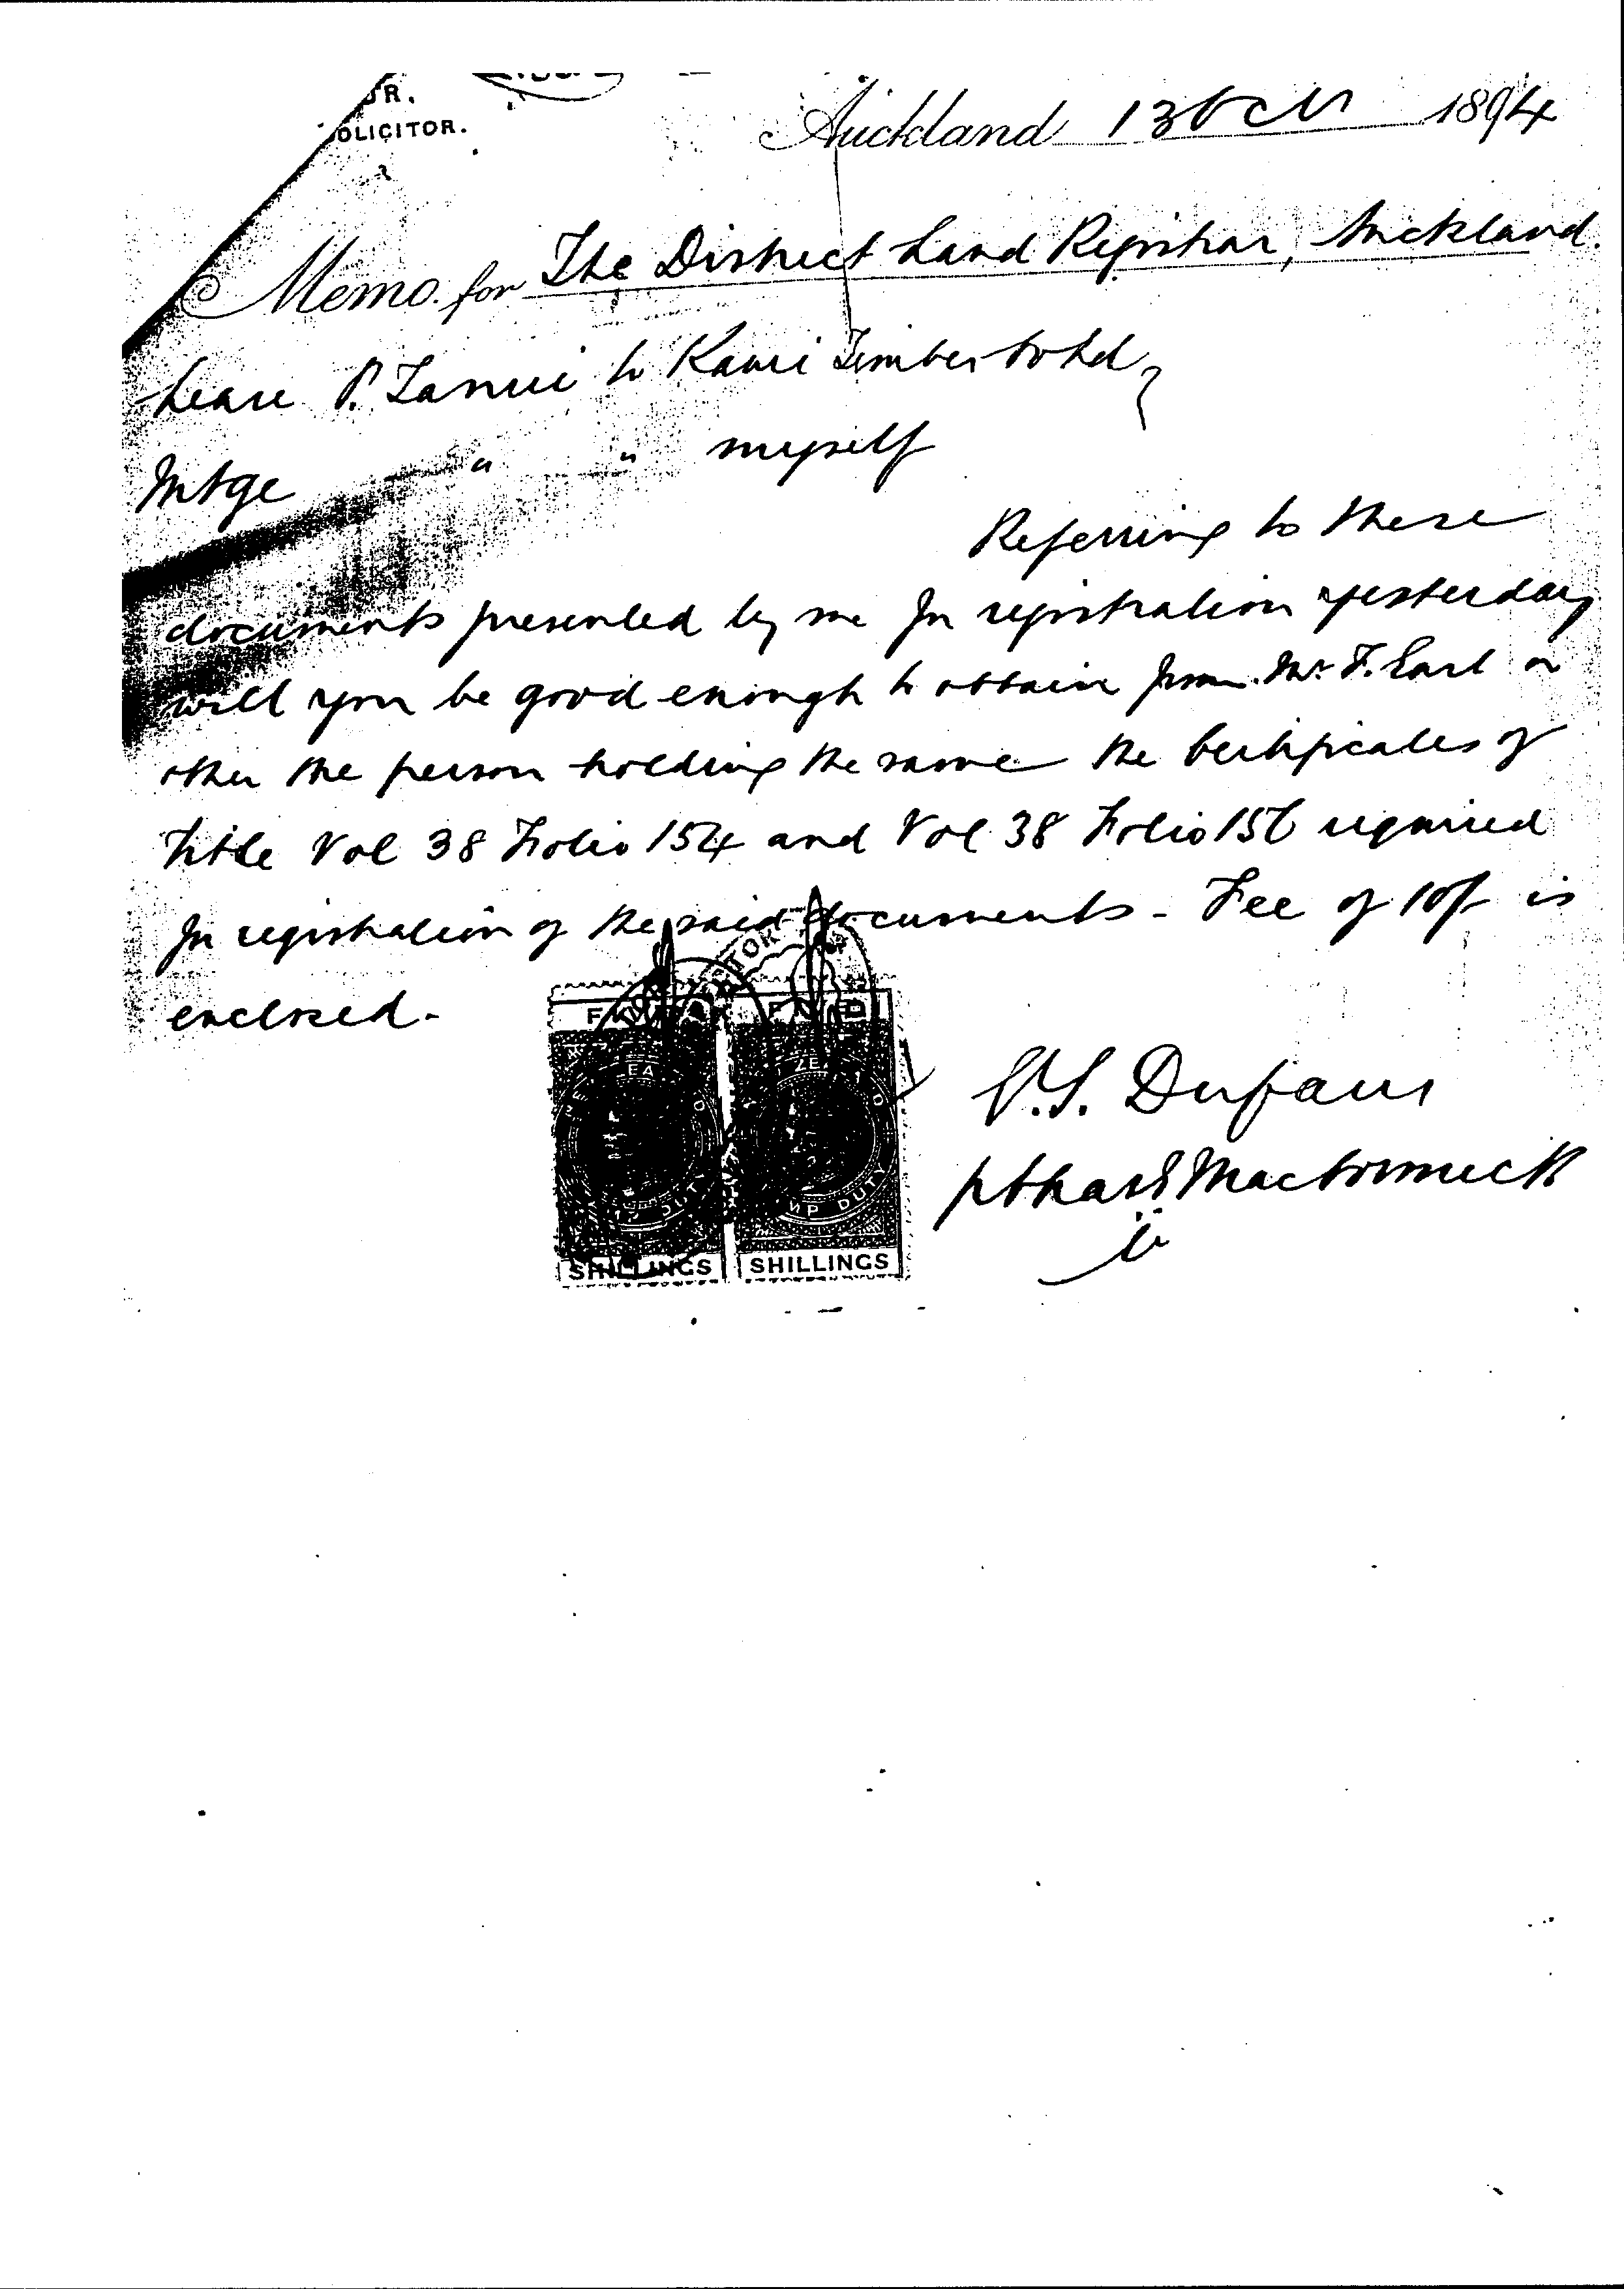 UR.
OLICITOR.
Auckland 13 Oct 1894
Memo. for The District Land Registrar, Auckland.
Lease P. Tanui to Kauri Timber Co Ltd
Mtge " " myself
Referring to these
documents presented by me for registration yesterday
will you be good enough to obtain from Mr F. Earl or
other the person holding the same the Certificates of
Title Vol 38 Folio 154 and Vol 38 Folio 156 required
for registration of the said documents - Fee of 10/- is
enclosed -
E.T. Dufaur
MacCormick
ZEA
DUTY
MP DUTY
SHILLINGS SHILLINGS